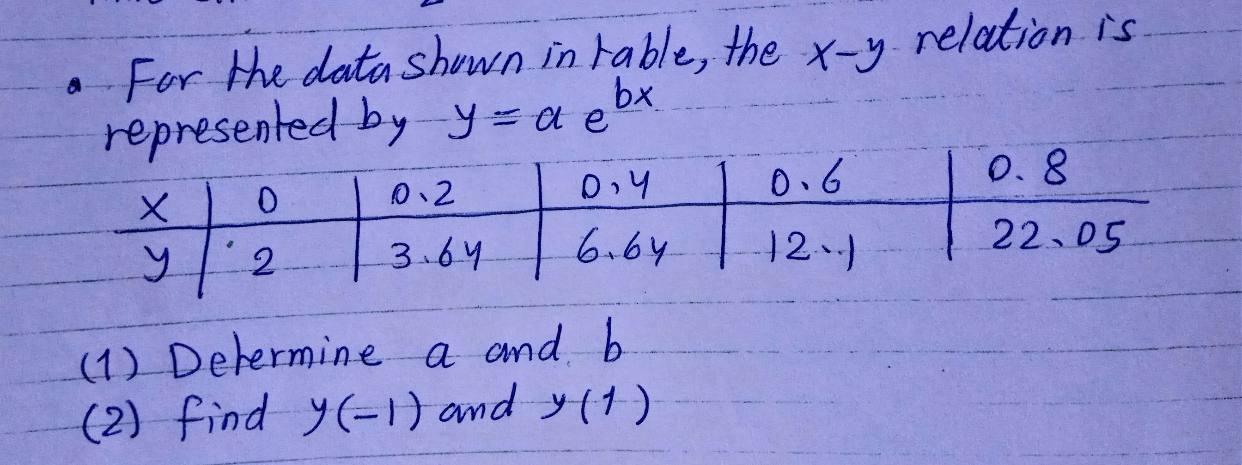 • For the data shown in table, the x-y relation is
represented by y = a e^bx
x | 0 | 0.2 | 0.4 | 0.6 | 0.8
y | 2 | 3.64 | 6.64 | 12.1 | 22.05
(1) Determine a and b
(2) find y(-1) and y(1)